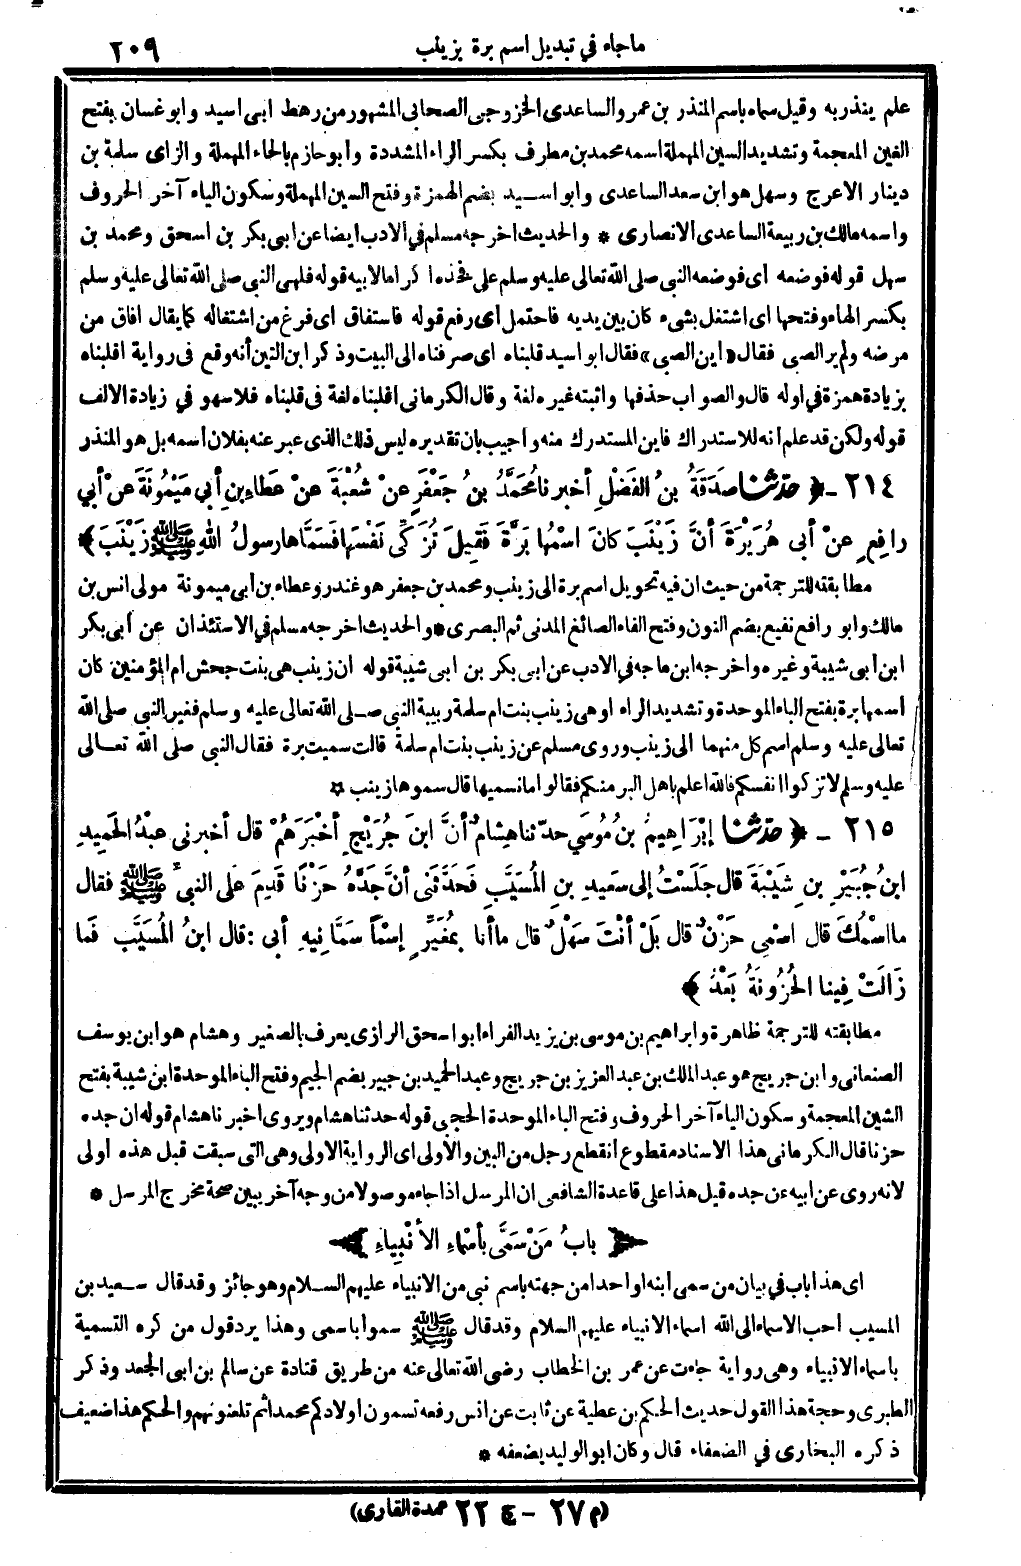 ماجاء في تبديل اسم برة بزينب ٢٠٩
علم ينذر به وقيل سماه باسم المنذر بن عمرو الساعدى الخزوجى الصحابى المشهور من رهط ابى اسيد وابو غسان بفتح
الغين المعجمة وتشديد السين المهملة اسمه محمد بن مطرف بكسر الراء المشددة وابو حازم بالحاء المهملة والزاى سلمة بن
دينار الاعرج وسهل هو ابن سعد الساعدى وابو اسيد بضم الهمزة وفتح السين المهملة وسكون الياء آخر الحروف
واسمه مالك بن ربيعة الساعدى الانصارى * والحديث اخرجه مسلم في الادب ايضا عن ابى بكر بن اسحق ومحمد بن
سهل قوله فوضعه اى فوضعه النبى صلى الله تعالى عليه وسلم على فخذه اكراما لابيه قوله فلهى النبى صلى الله تعالى عليه وسلم
بكسر الهاء وفتحها اى اشتغل بشىء كان بين يديه فاحتمل أى رفع قوله فاستفاق اى فرغ من اشتغاله كما يقال افاق من
مرضه ولم ير الصبى فقال «أين الصبى» فقال ابو اسيد قلبناه اى صرفناه الى البيت وذكر ابن التين أنه وقع فى رواية اقلبناه
بزيادة همزة في اوله قال والصواب حذفها واثبته غيره لغة وقال الكرمانى اقلبناه لغة فى قلبناه فلا سهو في زيادة الالف
قوله ولكن قد علم انه للاستدراك فاين المستدرك منه واجيب بان تقديره ليس ذلك الذى عبر عنه بفلان اسمه بل هو المنذر
٢١٤ - ﴿ حدثنا صَدَقَةُ بنُ الفَضْلِ أخبرنا مُحَمَّدُ بنُ جَعْفَرٍ عنْ شُعْبَةَ عنْ عَطاءِ بنِ أبي مَيْمُونَةَ عنْ أبي
رافِعٍ عنْ أبى هُرَيْرَةَ أنَّ زَيْنَبَ كانَ اسْمُها بَرَّةَ فَقِيلَ تُزَكِّى نَفْسَها فَسَمَّاها رسولُ اللهِ ﷺ زَيْنَبَ ﴾
مطابقته للترجمة من حيث ان فيه تحويل اسم برة الى زينب ومحمد بن جعفر هو غندر وعطاء بن أبى ميمونة مولى انس بن
مالك وابو رافع نفيع بضم النون وفتح الفاء الصائغ المدنى ثم البصرى * والحديث اخرجه مسلم في الاستئذان عن أبى بكر
ابن أبى شيبة وغيره واخرجه ابن ماجه في الادب عن ابى بكر بن ابى شيبة قوله ان زينب هى بنت جحش ام المؤمنين كان
اسمها برة بفتح الباء الموحدة وتشديد الراء او هى زينب بنت ام سلمة ربيبة النبى صلى الله تعالى عليه وسلم فغير النبى صلى الله
تعالى عليه وسلم اسم كل منهما الى زينب وروى مسلم عن زينب بنت ام سلمة قالت سميت برة فقال النبى صلى الله تعالى
عليه وسلم لا تزكوا انفسكم فالله اعلم باهل البر منكم فقالوا ما نسميها قال سموها زينب *
٢١٥ - ﴿ حدثنا إبْرَاهِيمُ بنُ مُوسَى حدّثنا هِشامٌ أنَّ ابنَ جُرَيْجٍ أخْبَرَهُمْ قال أخبرنى عبْدُ الحَمِيدِ
ابنُ جُبَيْرِ بنِ شَيْبَةَ قال جَلَسْتُ إلى سَعِيدِ بنِ المُسَيَّبِ فَحَدَّثَنى أنَّ جَدَّهُ حَزْنًا قَدِمَ عَلى النبيِّ ﷺ فقال
ما اسْمُكَ قال اسْمِى حَزْنٌ قال بَلْ أنْتَ سَهْلٌ قال ما أنا بمُغَيِّرٍ إسْماً سَمَّانِيهِ أبى : قال ابنُ المُسَيَّبِ فَما
زَالَتْ فِينا الحُزُونَةُ بَعْدُ ﴾
مطابقته للترجمة ظاهرة وابراهيم بن موسى بن يزيد الفراء ابو اسحق الرازى يعرف بالصغير وهشام هو ابن يوسف
الصنعانى وابن جريج هو عبد الملك بن عبد العزيز بن جريج وعبد الحميد بن جبير بضم الجيم وفتح الباء الموحدة ابن شيبة بفتح
الشين المعجمة وسكون الياء آخر الحروف وفتح الباء الموحدة الحجبى قوله حدثنا هشام ويروى اخبرنا هشام قوله ان جده
حزنا قال الكرمانى هذا الاسناد مقطوع انقطع رجل من البين والأولى اى الرواية الاولى وهى التى سبقت قبل هذه أولى
لانه روى عن ابيه عن جده قيل هذا على قاعدة الشافعى ان المرسل اذا جاء موصولا من وجه آخر يبين صحة مخرج المرسل *
﴿ بابُ مَنْ سَمَّى بأسْماءِ الأنْبِياءِ ﴾
اى هذا باب في بيان من سمى ابنه او احدا من جهته باسم نبى من الانبياء عليهم السلام وهو جائز وقد قال سعيد بن
المسيب أحب الاسماء الى الله اسماء الانبياء عليهم السلام وقد قال ﷺ سموا باسمى وهذا يرد قول من كره التسمية
باسماء الانبياء وهى رواية جاءت عن عمر بن الخطاب رضى الله تعالى عنه من طريق قتادة عن سالم بن ابى الجعد وذكر
الطبرى وحجة هذا القول حديث الحكم بن عطية عن ثابت عن انس رفعه تسمون اولادكم محمدا ثم تلعنونهم والحكم هذا ضعيف
ذكره البخارى في الضعفاء قال وكان ابو الوليد يضعفه *
(م ٢٧ - ج ٢٢ عمدة القارى)